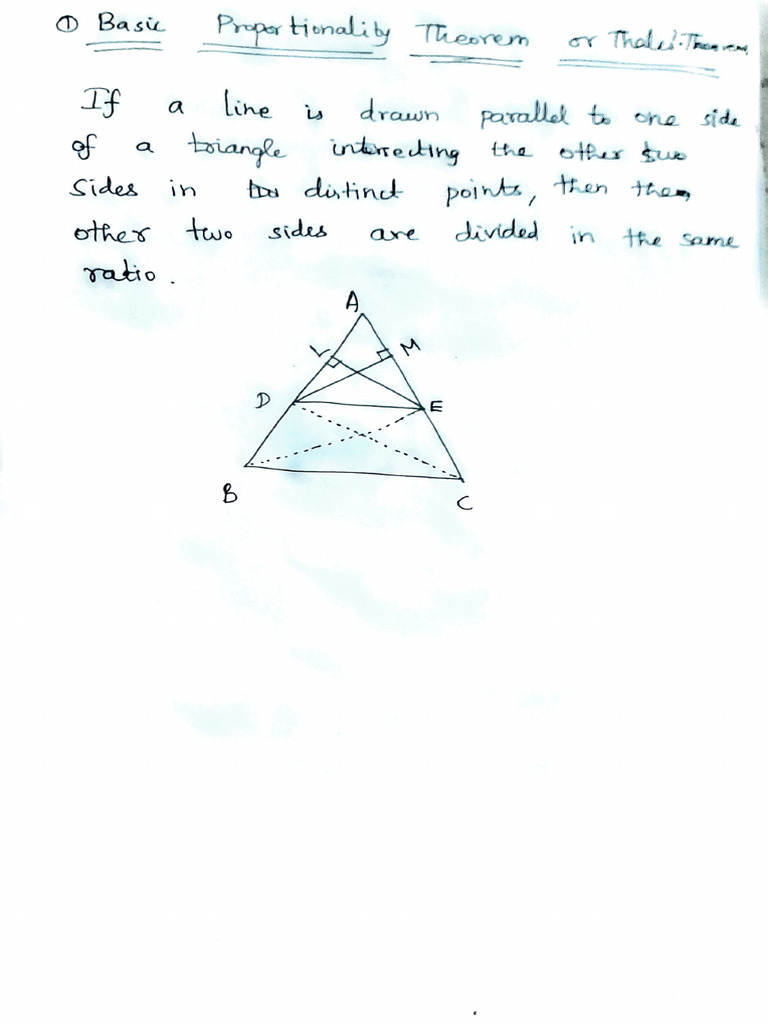 ① Basic Proportionality Theorem or Thales' Theorem
If a line is drawn parallel to one side
of a triangle intersecting the other two
sides in distinct points, then the
other two sides are divided in the same
ratio.
A
L M
D E
B C